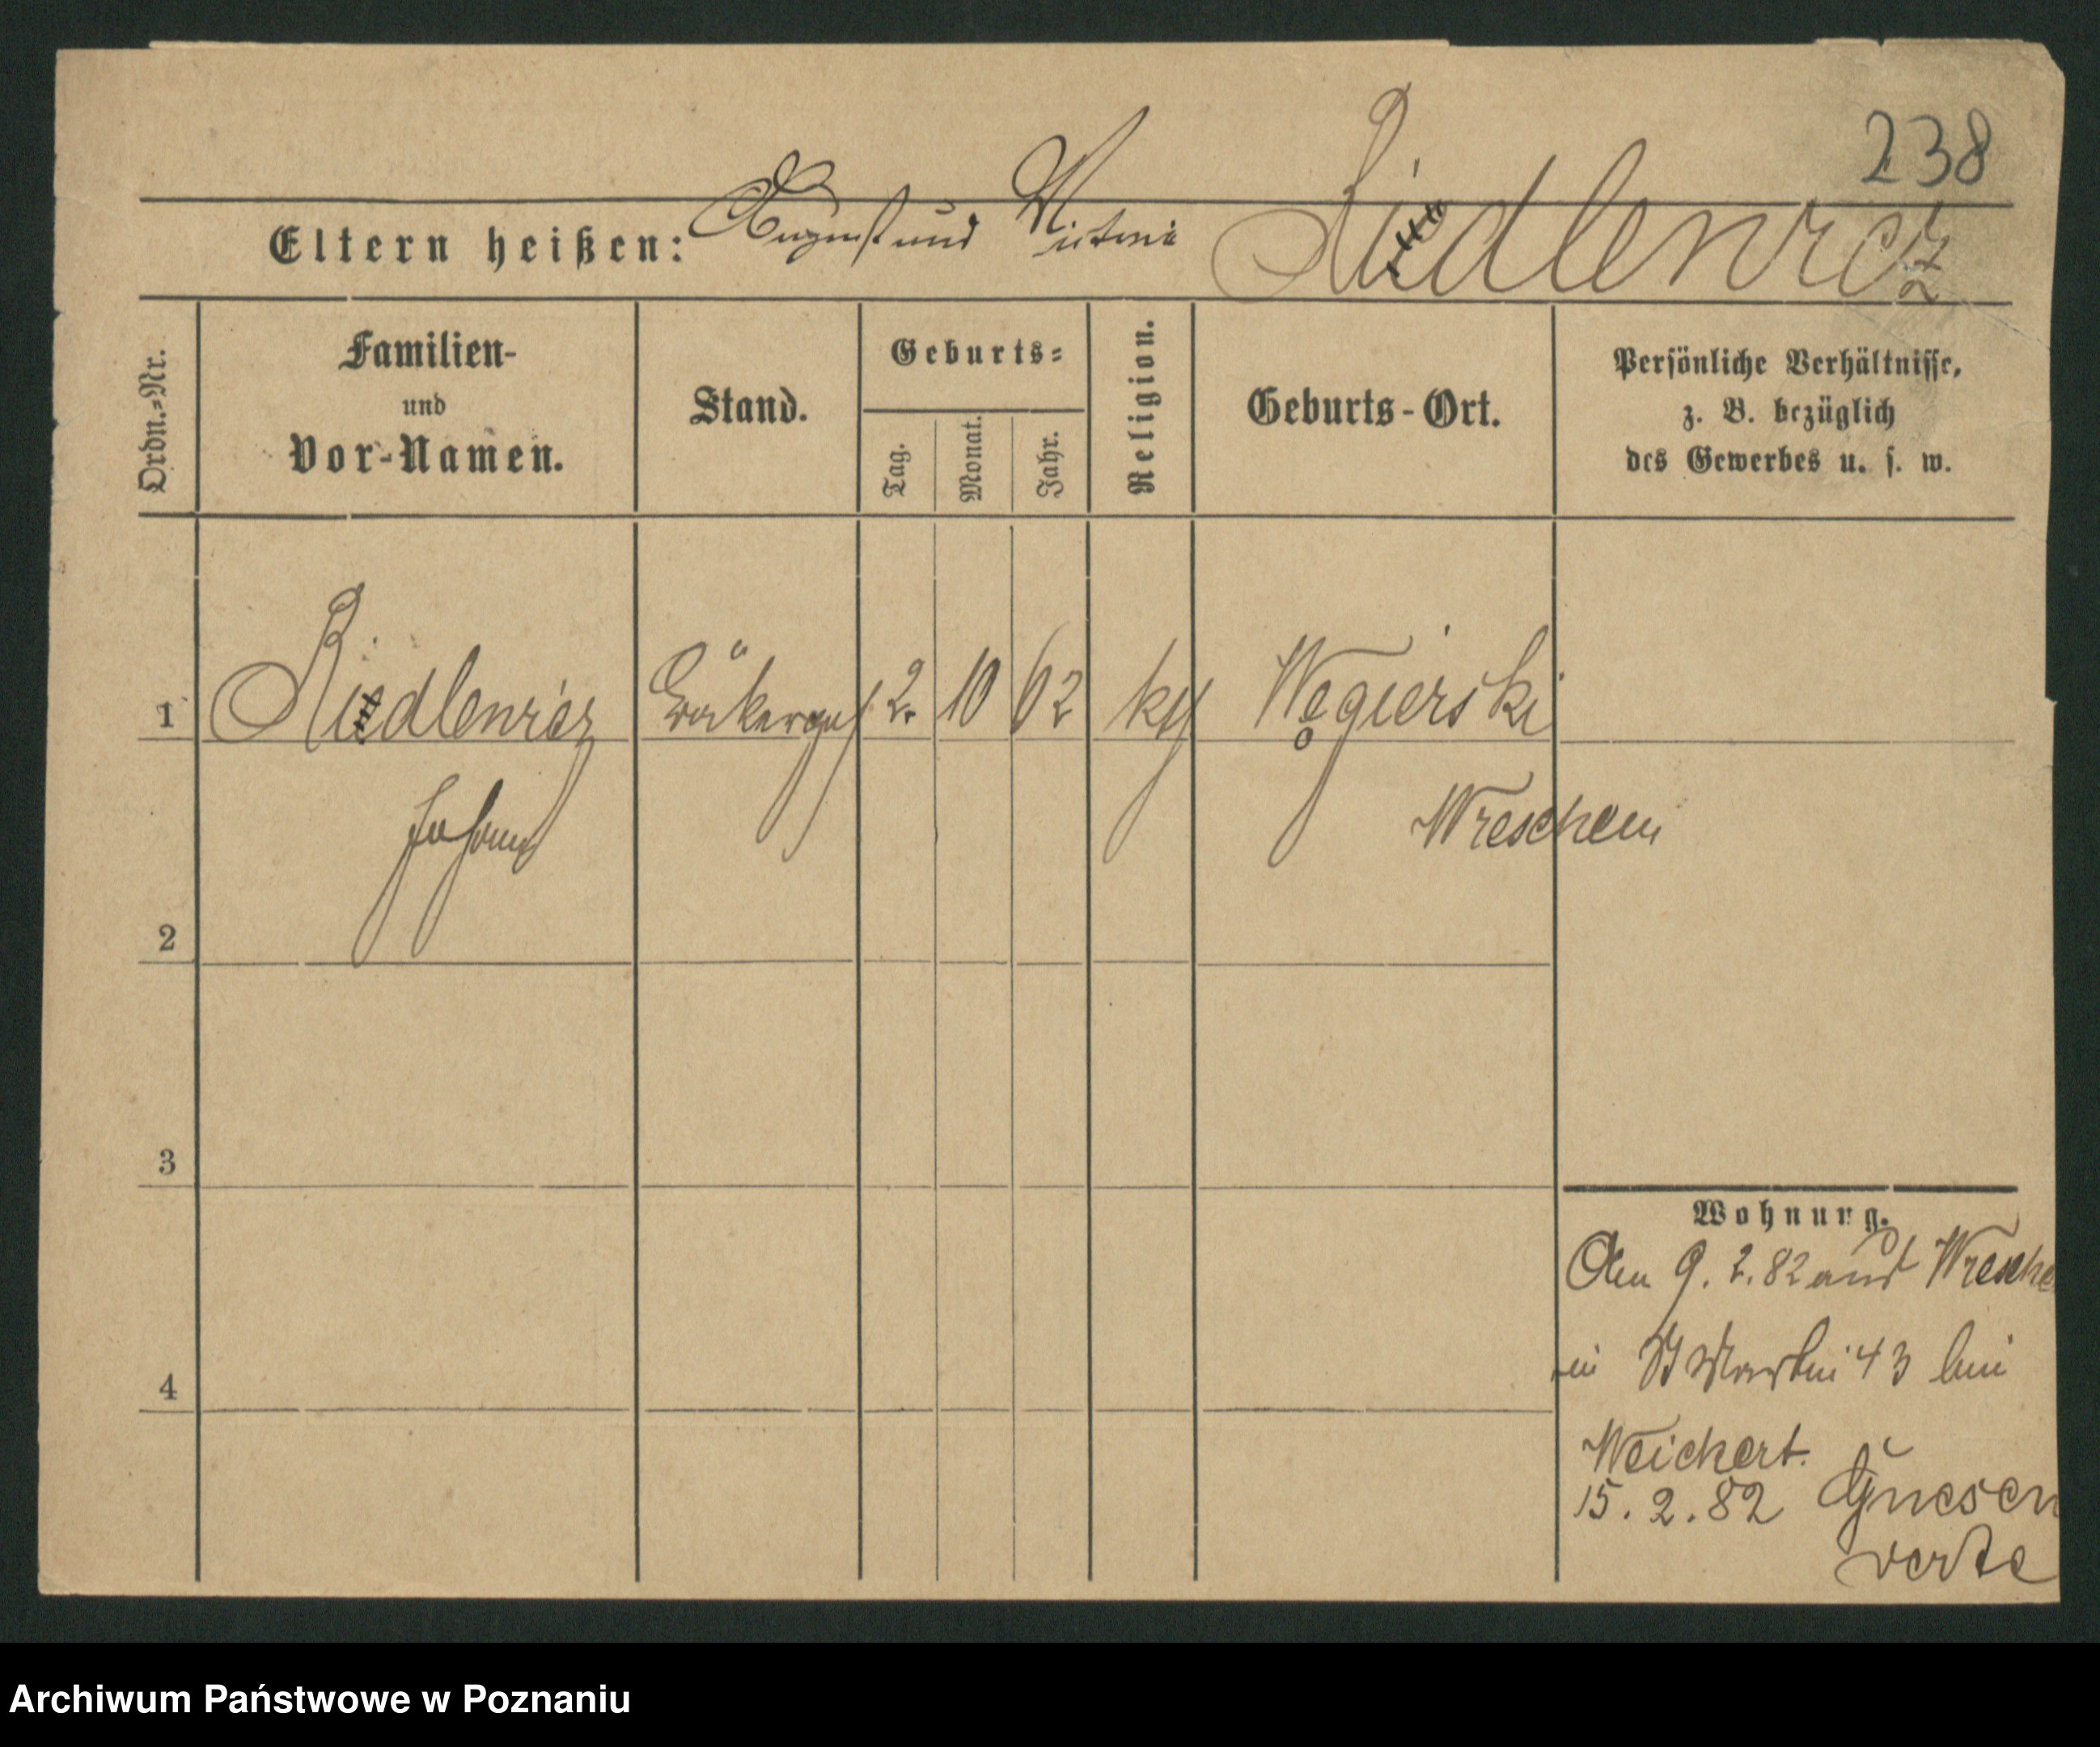 238
Eltern heißen: August und Victoria Riedlewicz
Ordn.-Nr.
Familien- und Vor-Namen.
Stand.
Geburts-
Tag.
Monat.
Jahr.
Religion.
Geburts-Ort.
Persönliche Verhältnisse,
z. B. bezüglich
des Gewerbes u. s. w.
1 Riedlewicz Bäckerges 2. 10 62 kth Węgierski
Johann Wreschen
2
3
4
Wohnung.
Am 9. 2. 82 aus Wresche
in St Martin 43 bei
Weichert.
15. 2. 82 Gnesen
verte
Archiwum Państwowe w Poznaniu